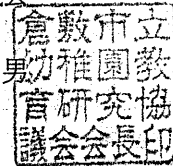 男
倉敷市立
幼稚園教
育研究協
議会会長印